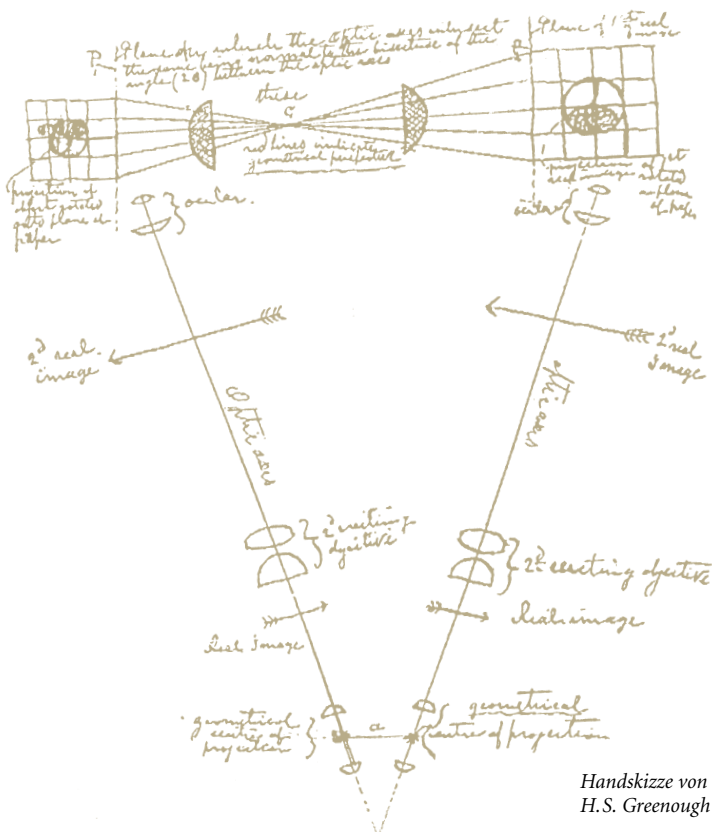 Plane in which the optic axes intersect
the same being normal to the bisectrix of the
angle (2θ) between the optic axes
these
red lines indicate
geometrical perspective
P
Plane of 1st real
image
projection of
object rotated
onto plane of
paper
projection of 1st
real image rotated
on plane
of paper
ocular.
ocular
2d real
image
2d real
image
Optic axis
optic axis
2d erecting
objective
2d erecting objective
Real image
Real image
geometrical
centre of
projection
a
geometrical
centre of projection
Handskizze von
H.S. Greenough